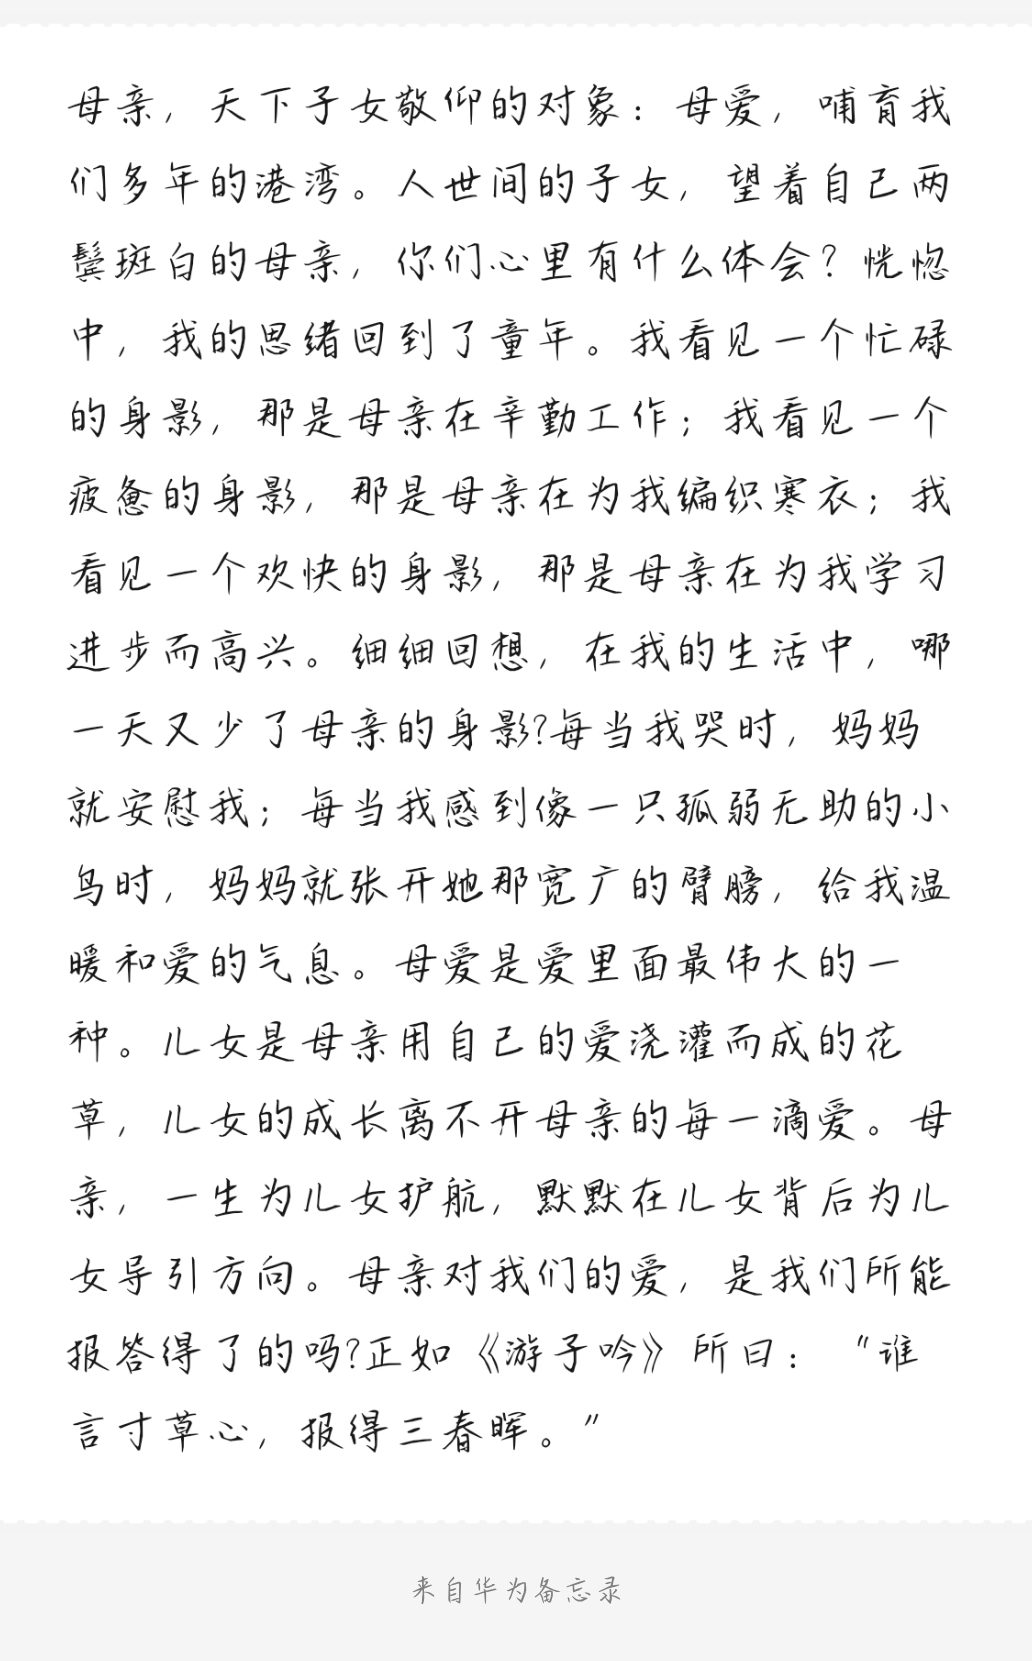 母亲，天下子女敬仰的对象：母爱，哺育我
们多年的港湾。人世间的子女，望着自己两
鬓斑白的母亲，你们心里有什么体会？恍惚
中，我的思绪回到了童年。我看见一个忙碌
的身影，那是母亲在辛勤工作；我看见一个
疲惫的身影，那是母亲在为我编织寒衣；我
看见一个欢快的身影，那是母亲在为我学习
进步而高兴。细细回想，在我的生活中，哪
一天又少了母亲的身影?每当我哭时，妈妈
就安慰我；每当我感到像一只孤弱无助的小
鸟时，妈妈就张开她那宽广的臂膀，给我温
暖和爱的气息。母爱是爱里面最伟大的一
种。儿女是母亲用自己的爱浇灌而成的花
草，儿女的成长离不开母亲的每一滴爱。母
亲，一生为儿女护航，默默在儿女背后为儿
女导引方向。母亲对我们的爱，是我们所能
报答得了的吗?正如《游子吟》所曰：“谁
言寸草心，报得三春晖。”
来自华为备忘录